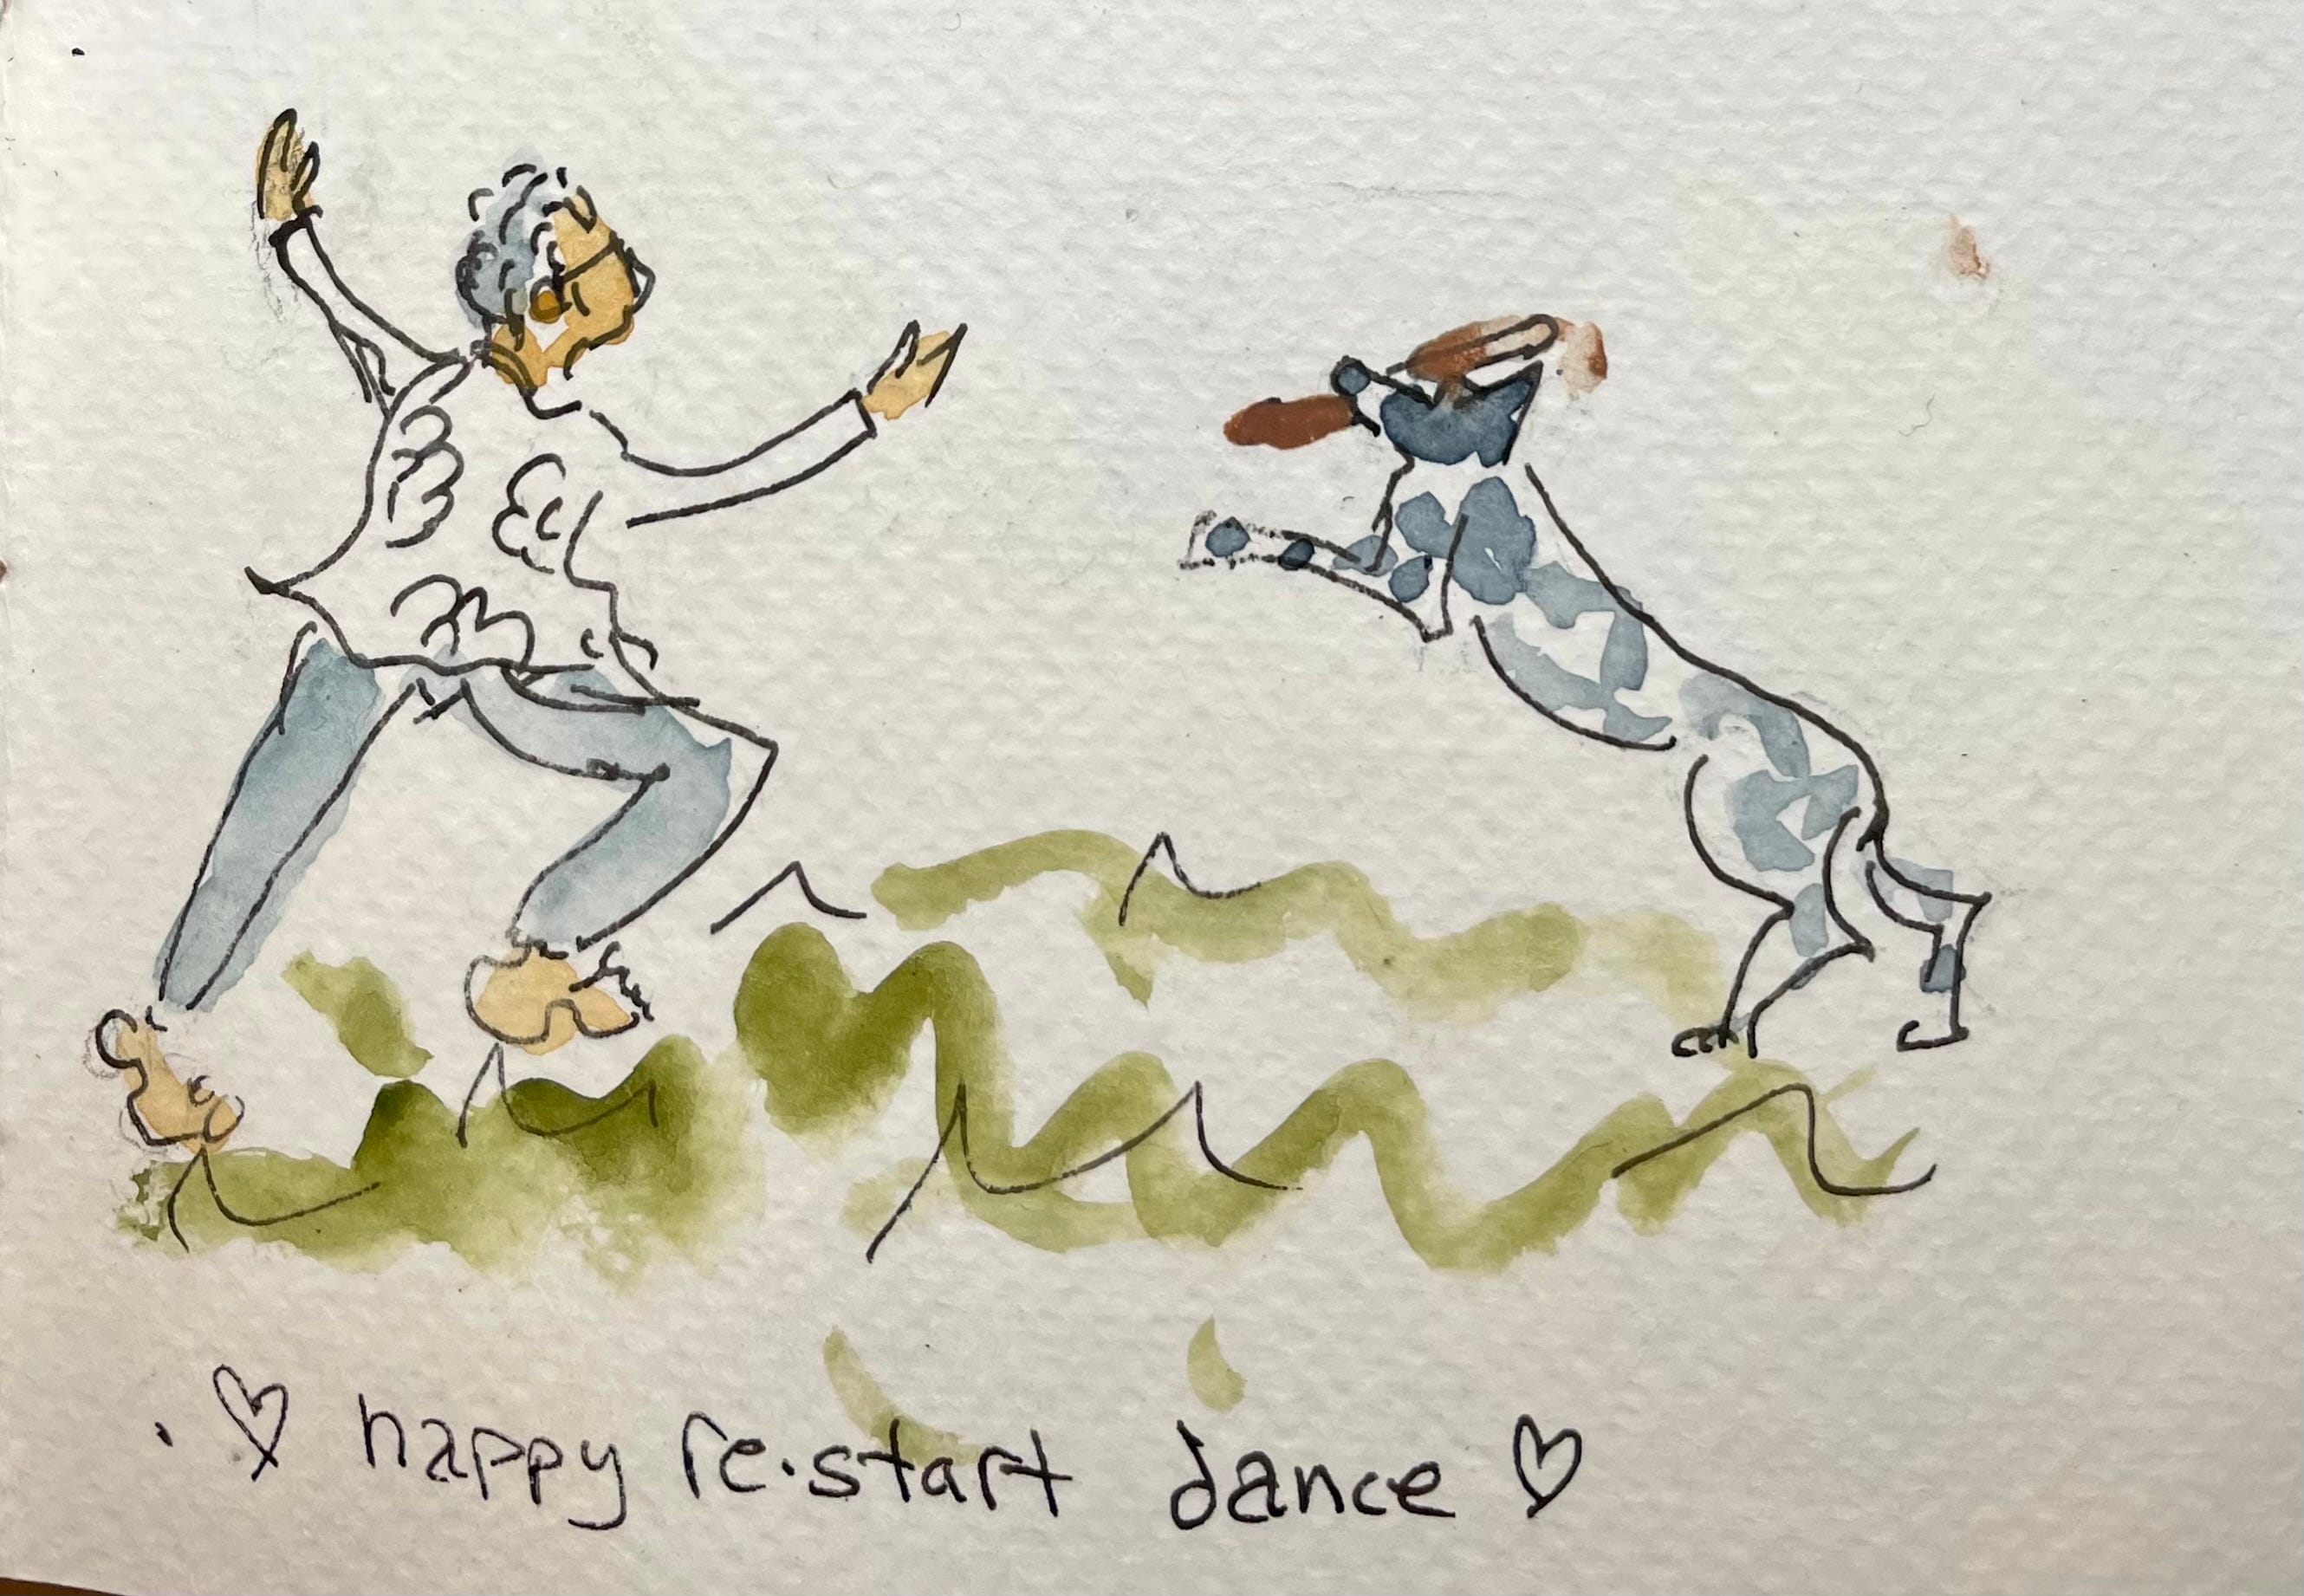 ♡ happy re·start dance ♡